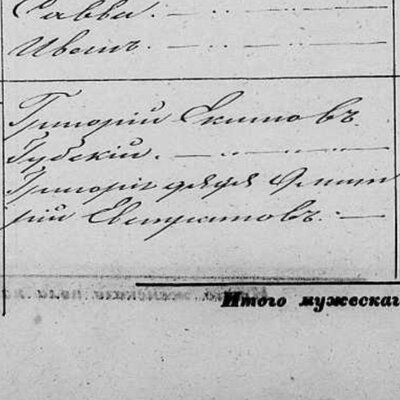 Савва.
Иванъ.
Григорій Екимовъ
Губскій.
Григорія дядя Дмит
рій Евстратовъ.
Итого мужескаг